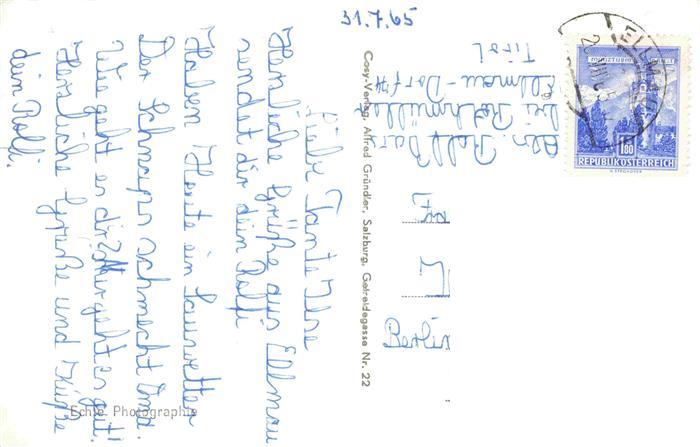 31.7.65
Liebe Tante Ilse
Herzliche Grüße aus Ellmau
sendet dir dein Rolfi
Haben Heute ein Sauwetter
Der Schnaps schmeckt Oma.
Wie geht es dir? Mir geht es gut.
Herzliche Grüße und Küße
dein Rolfi.
Echte Photographie
Cosy-Verlag, Alfred Gründler, Salzburg, Getreidegasse Nr. 22
Abs. Rolf
bei
Ellmau-Dorf
Tirol
Berlin
ELLMAU
1.80
REPUBLIK ÖSTERREICH